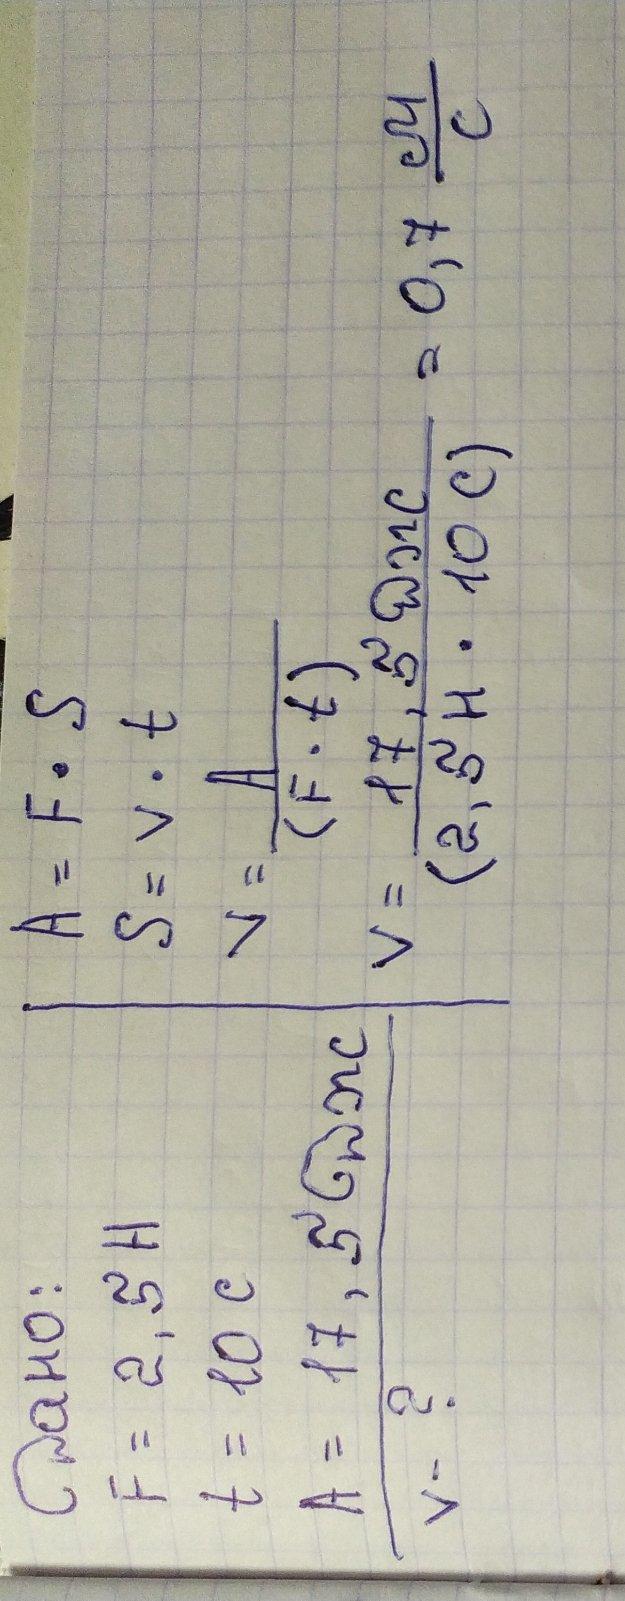 Дано:
F = 2,5 Н
t = 10 с
A = 17,5 Дж
v - ?
A = F · S
S = v · t
v = A / (F · t)
v = 17,5 Дж / (2,5 Н · 10 с) = 0,7 м/с